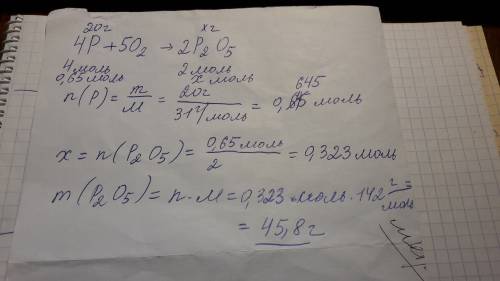 20г xг
4P + 5O₂ → 2P₂O₅
4 моль 2 моль
0,65 моль x моль
n(P) = m/M = 20г/31 г/моль = 0,645 моль
x = n(P₂O₅) = 0,65 моль/2 = 0,323 моль
m(P₂O₅) = n·M = 0,323 моль · 142 г/моль =
= 45,8 г